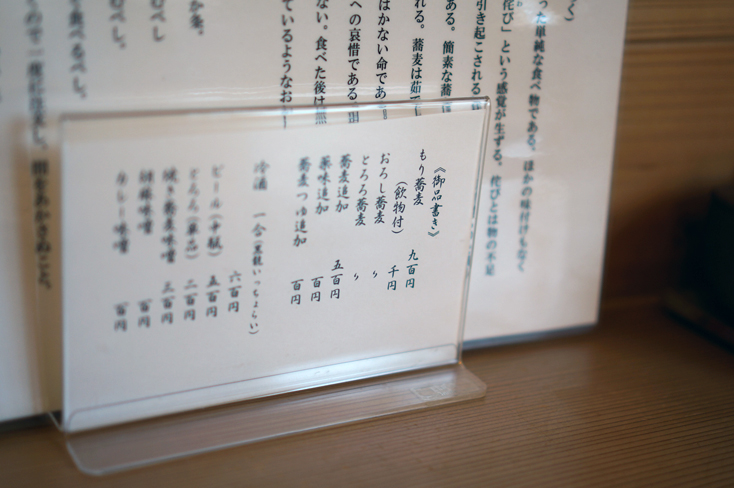 った単純な食べ物である。ほかの味付けもなく
侘び」という感覚が生ずる。侘びとは物の不足
引き起こされる
ある。簡素な蕎
れる。蕎麦は茹で
はかない命であ
への哀惜である。
ない。食べた後は
ているようなおか
べし。
《御品書き》
もり蕎麦 九百円
(飲物付) 千円
おろし蕎麦 〃
とろろ蕎麦 〃
蕎麦追加 五百円
薬味追加 百円
蕎麦つゆ追加 百円
冷酒 一合(黒龍いっちょらい)
六百円
ビール(中瓶) 五百円
とろろ(単品) 二百円
焼き蕎麦味噌 三百円
胡麻味噌 百円
カレー味噌 百円